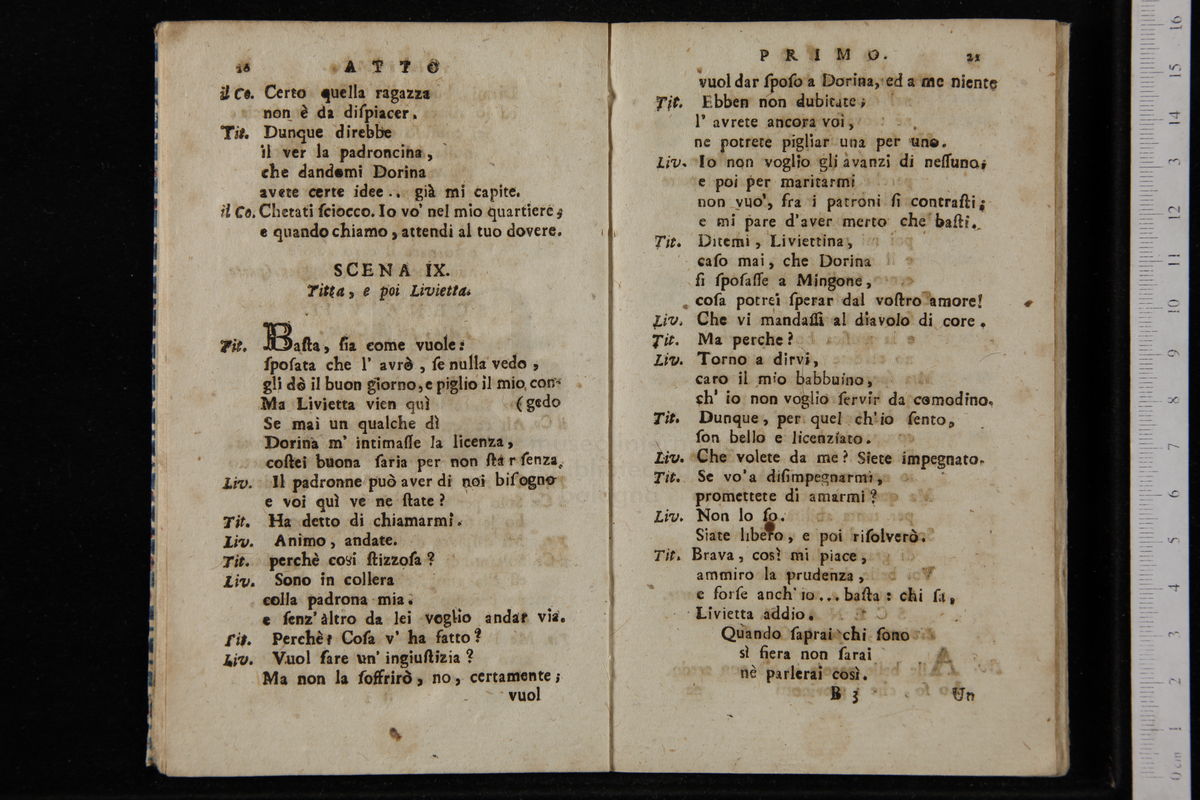 26 ATTO
il Co. Certo quella ragazza
non è da diſpiacer.
Tit. Dunque direbbe
il ver la padroncina,
che dandomi Dorina
avete certe idee.. già mi capite.
il Co. Chetati ſciocco. Io vo' nel mio quartiere;
e quando chiamo, attendi al tuo dovere.
SCENA IX.
Titta, e poi Livietta.
Tit. Baſta, ſia come vuole:
ſpoſata che l' avrò, ſe nulla vedo,
gli dò il buon giorno, e piglio il mio con-
Ma Livietta vien quì (gedo
Se mai un qualche dì
Dorina m' intimaſſe la licenza,
coſtei buona ſaria per non ſtar ſenza.
Liv. Il padronne può aver di noi biſogno
e voi quì ve ne ſtate?
Tit. Ha detto di chiamarmi.
Liv. Animo, andate.
Tit. perchè così ſtizzoſa?
Liv. Sono in collera
colla padrona mia.
e ſenz' àltro da lei voglio andar via.
Tit. Perchè? Coſa v' ha fatto?
Liv. Vuol fare un' ingiuſtizia?
Ma non la ſoffrirò, no, certamente;
vuol
PRIMO. 21
vuol dar ſpoſo a Dorina, ed a me niente
Tit. Ebben non dubitate;
l' avrete ancora voi,
ne potrete pigliar una per uno.
Liv. Io non voglio gli avanzi di neſſuno;
e poi per maritarmi
non vuo', fra i patroni ſi contraſti;
e mi pare d'aver merto che baſti.
Tit. Ditemi, Liviettina,
caſo mai, che Dorina
ſi ſpoſaſſe a Mingone,
coſa potrei ſperar dal voſtro amore!
Liv. Che vi mandaſſi al diavolo di core.
Tit. Ma perche?
Liv. Torno a dirvi,
caro il mio babbuino,
ch' io non voglio ſervir da comodino.
Tit. Dunque, per quel ch'io ſento,
ſon bello e licenziato.
Liv. Che volete da me? Siete impegnato.
Tit. Se vo'a diſimpegnarmi,
promettete di amarmi?
Liv. Non lo ſo.
Siate libero, e poi riſolverò.
Tit. Brava, così mi piace,
ammiro la prudenza,
e forſe anch' io... baſta: chi ſa,
Livietta addio.
Quando ſaprai chi ſono
sì fiera non ſarai
nè parlerai così.
B 3 Un
16
15
14
13
12
11
10
9
8
7
6
5
4
3
2
1
0 cm